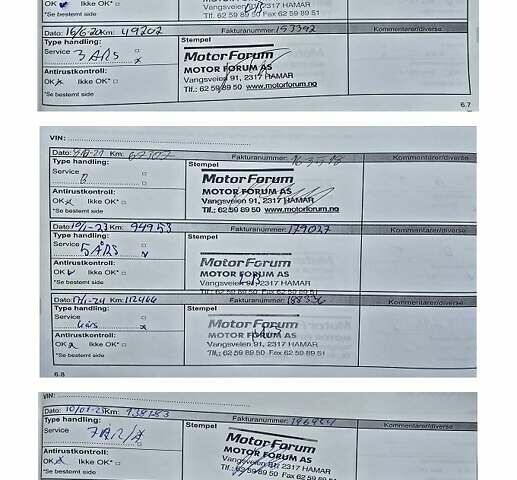 OK Ikke OK*
*Se bestemt side
Vangsveien 91, 2317 HAMAR
Tlf. 62 59 89 50 Fax 62 59 89 51
Dato: 16/6-20 Km: 49202 Fakturanummer: 153392 Kommentarer/diverse
Type handling:
Service
3 ÅRS x
Antirustkontroll:
OK x Ikke OK*
*Se bestemt side
Stempel
Motor Forum
MOTOR FORUM AS
Vangsveien 91, 2317 HAMAR
Tlf.: 62 59 89 50 www.motorforum.no
6.7
VIN:
Dato: Km: Fakturanummer: 163518 Kommentarer/diverse
Type handling:
Service
Antirustkontroll:
OK x Ikke OK*
*Se bestemt side
Stempel
Motor Forum
MOTOR FORUM AS
Vangsveien 91, 2317 HAMAR
Tlf.: 62 59 89 50 www.motorforum.no
Dato: Km: 94953 Fakturanummer: 179027 Kommentarer/diverse
Type handling:
Service
5 ÅRS
Antirustkontroll:
OK Ikke OK*
*Se bestemt side
Stempel
Motor Forum
MOTOR FORUM AS
Vangsveien 91, 2317 HAMAR
Tlf.: 62 59 89 50 Fax 62 59 89 51
Dato: Km: 112466 Fakturanummer: 188336 Kommentarer/diverse
Type handling:
Service
x
Antirustkontroll:
OK Ikke OK*
*Se bestemt side
Stempel
Motor Forum
MOTOR FORUM AS
Vangsveien 91, 2317 HAMAR
Tlf.: 62 59 89 50 Fax 62 59 89 51
6.8
VIN:
Dato: Km: Fakturanummer: Kommentarer/diverse
Type handling:
Service
Antirustkontroll:
OK x Ikke OK*
*Se bestemt side
Stempel
Motor Forum
MOTOR FORUM AS
Vangsveien 91, 2317 HAMAR
Tlf.: 62 59 89 50